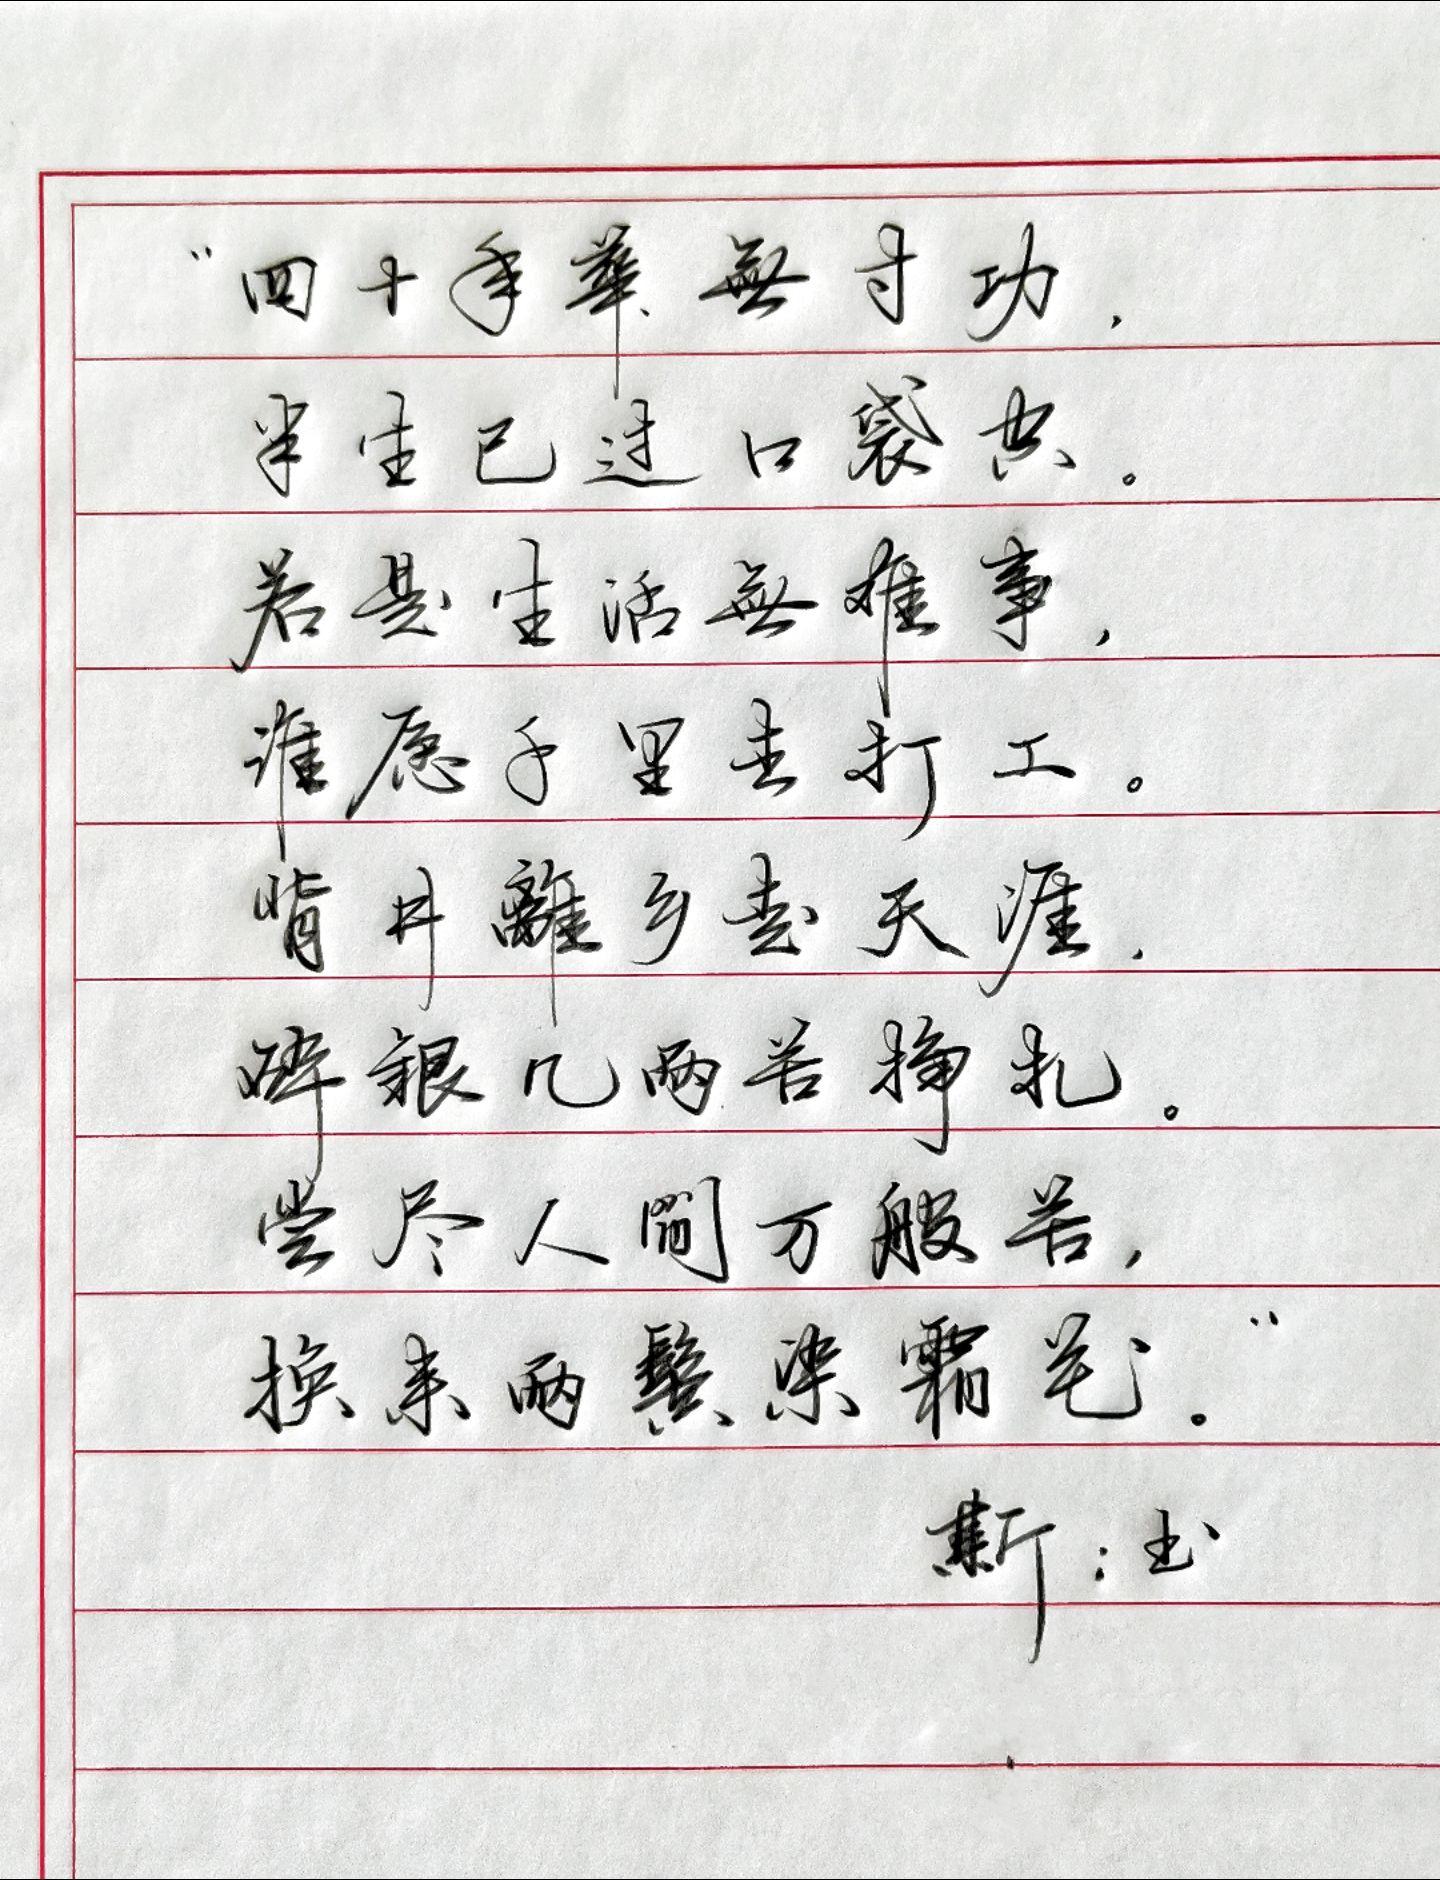 “四十年華無寸功,
半生已过口袋空。
若是生活無难事,
谁愿千里去打工。
背井離乡走天涯,
碎銀几两苦掙扎。
尝尽人間万般苦,
换来两鬓染霜花。”
斯:书